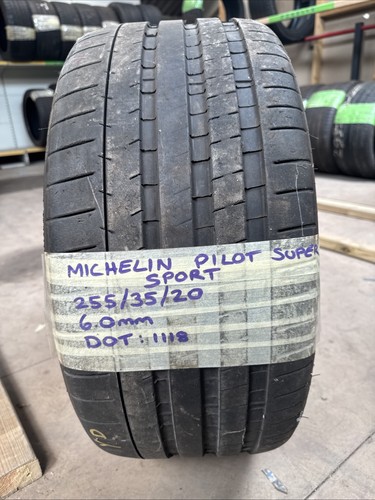 MICHELIN PILOT SUPER
SPORT
255/35/20
6.0mm
DOT: 1118